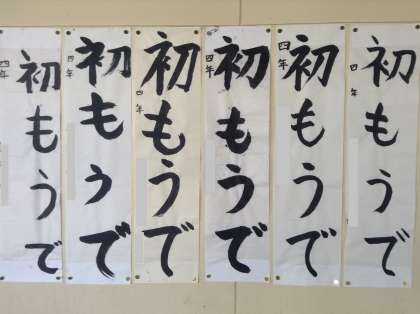 初もうで
四年
初もうで
四年
初もうで
四年
初もうで
四年
初もうで
四年
初もうで
四年